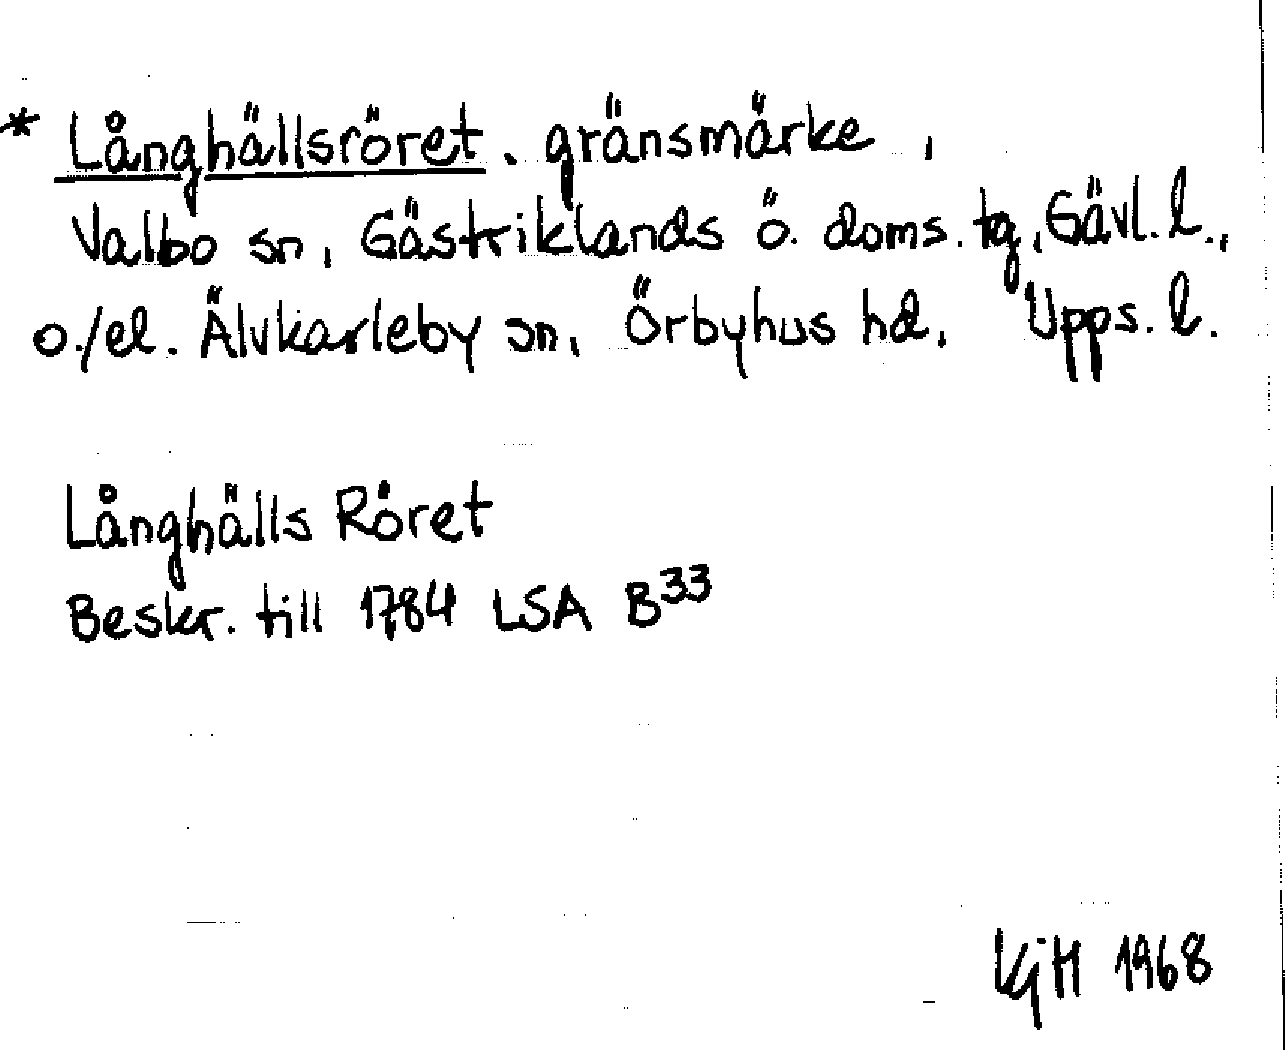 * Långhällsröret. gränsmärke,
Valbo sn, Gästriklands ö. doms. tg, Gävl. l.,
o./el. Älvkarleby sn, Örbyhus hd, Upps. l.
Långhälls Röret
Beskr. till 1784 LSA B³³
KjH 1968